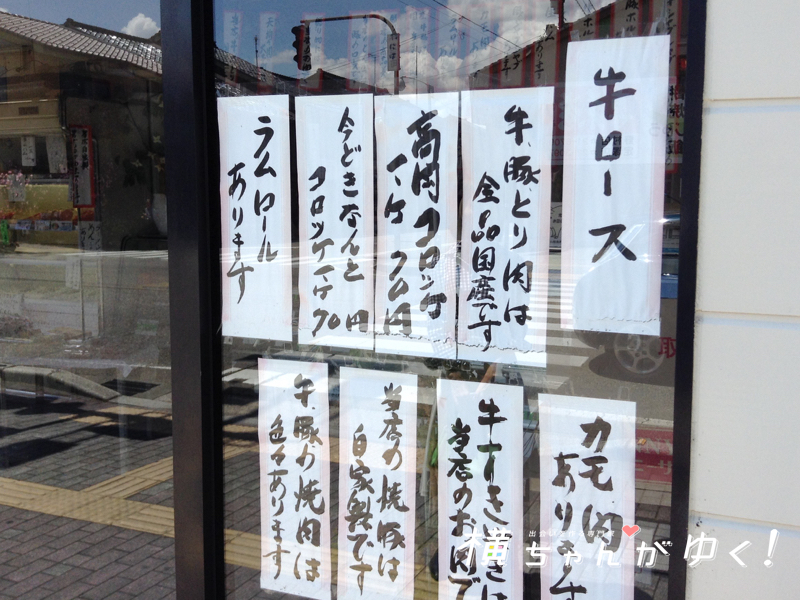 牛ロース
牛、豚、とり肉は
全品国産です
高岡コロッケ
1ヶ70円
今どきなんと
コロッケ1ヶ70円
ラムロール
あります
カモ肉
あります
牛すきやきは
当店のお肉で
当店の焼豚は
自家製です
牛、豚の焼肉は
色々あります
横ちゃんがゆく!